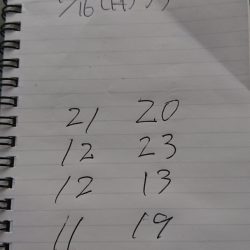 21 20
12 23
12 13
11 19